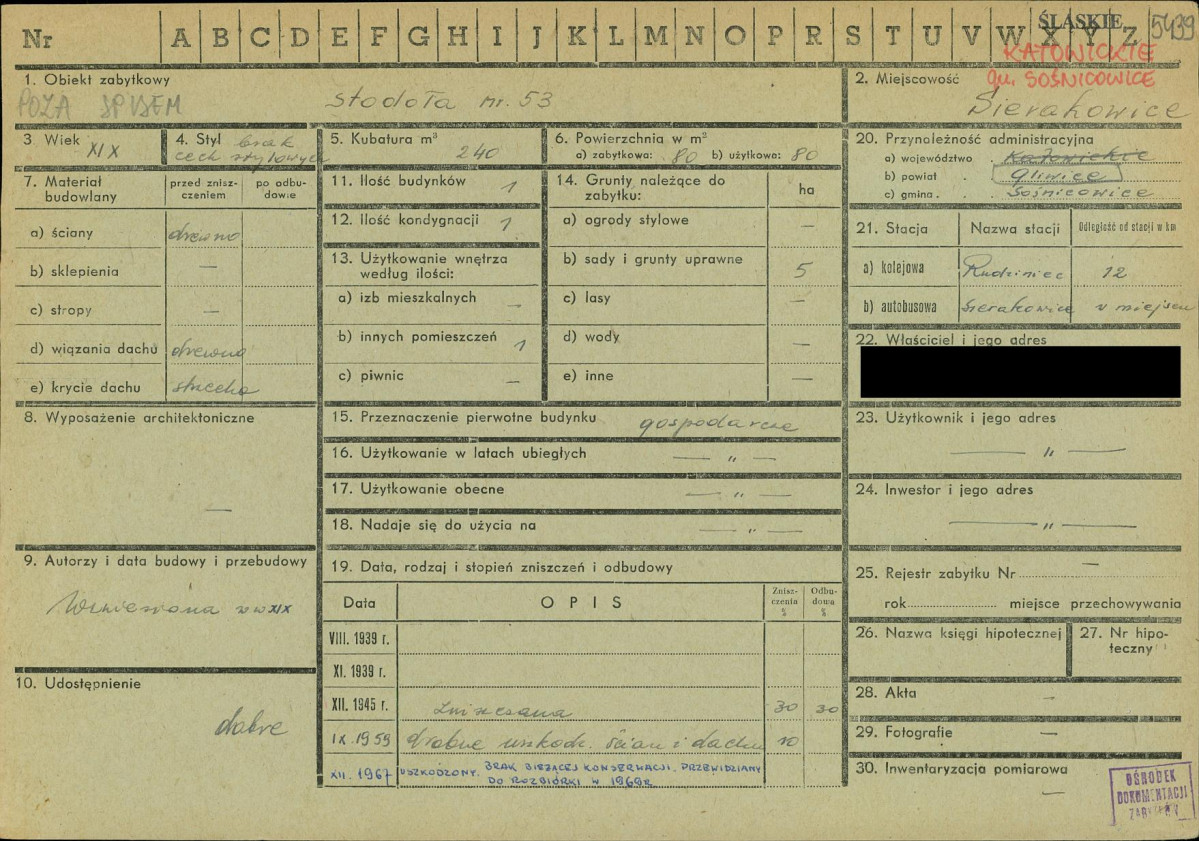 Nr A B C D E F G H I J K L M N O P R S T U V W X Y Z
ŚLĄSKIE 5439
KATOWICKIE
gm. SOŚNICOWICE
1. Obiekt zabytkowy
POZA SPISEM
stodoła nr. 53
2. Miejscowość
Sierakowice
3 Wiek XIX
4. Styl brak
cech stylowych
5. Kubatura m³ 240
6. Powierzchnia w m²
a) zabytkowa: 80 b) użytkowa: 80
7. Materiał budowlany
przed znisz-
czeniem
po odbu-
dowie
a) ściany drewno
b) sklepienia —
c) stropy —
d) wiązania dachu drewno
e) krycie dachu strzecha
8. Wyposażenie architektoniczne
—
9. Autorzy i data budowy i przebudowy
Wzniesiona w w XIX
10. Udostępnienie
dobre
11. Ilość budynków 1
12. Ilość kondygnacji 1
13. Użytkowanie wnętrza
według ilości:
a) izb mieszkalnych —
b) innych pomieszczeń 1
c) piwnic —
14. Grunty należące do
zabytku:
ha
a) ogrody stylowe —
b) sady i grunty uprawne 5
c) lasy —
d) wody —
e) inne —
15. Przeznaczenie pierwotne budynku gospodarcze
16. Użytkowanie w latach ubiegłych — „ —
17. Użytkowanie obecne — „ —
18. Nadaje się do użycia na — „ —
19. Data, rodzaj i stopień zniszczeń i odbudowy
Data OPIS
Znisz-
czenia
%
Odbu-
dowa
%
VIII. 1939 r.
XI. 1939 r.
XII. 1945 r. zniszczona 30 30
IX. 1959 drobne uszkodz. ścian i dachu 10
XII. 1967 USZKODZONY. BRAK BIEŻĄCEJ KONSERWACJI. PRZEWIDZIANY
DO ROZBIÓRKI W 1969R
20. Przynależność administracyjna
a) województwo . Katowickie
b) powiat . Gliwice
c) gmina . Sośnicowice
21. Stacja Nazwa stacji Odległość od stacji w km
a) kolejowa Rudziniec 12
b) autobusowa Sierakowice w miejscu
22. Właściciel i jego adres
23. Użytkownik i jego adres
— „ —
24. Inwestor i jego adres
— „ —
25. Rejestr zabytku Nr —
rok miejsce przechowywania
26. Nazwa księgi hipotecznej
27. Nr hipo-
teczny
28. Akta —
29. Fotografie —
30. Inwentaryzacja pomiarowa
—
OŚRODEK
DOKUMENTACJI
ZABYTKÓW